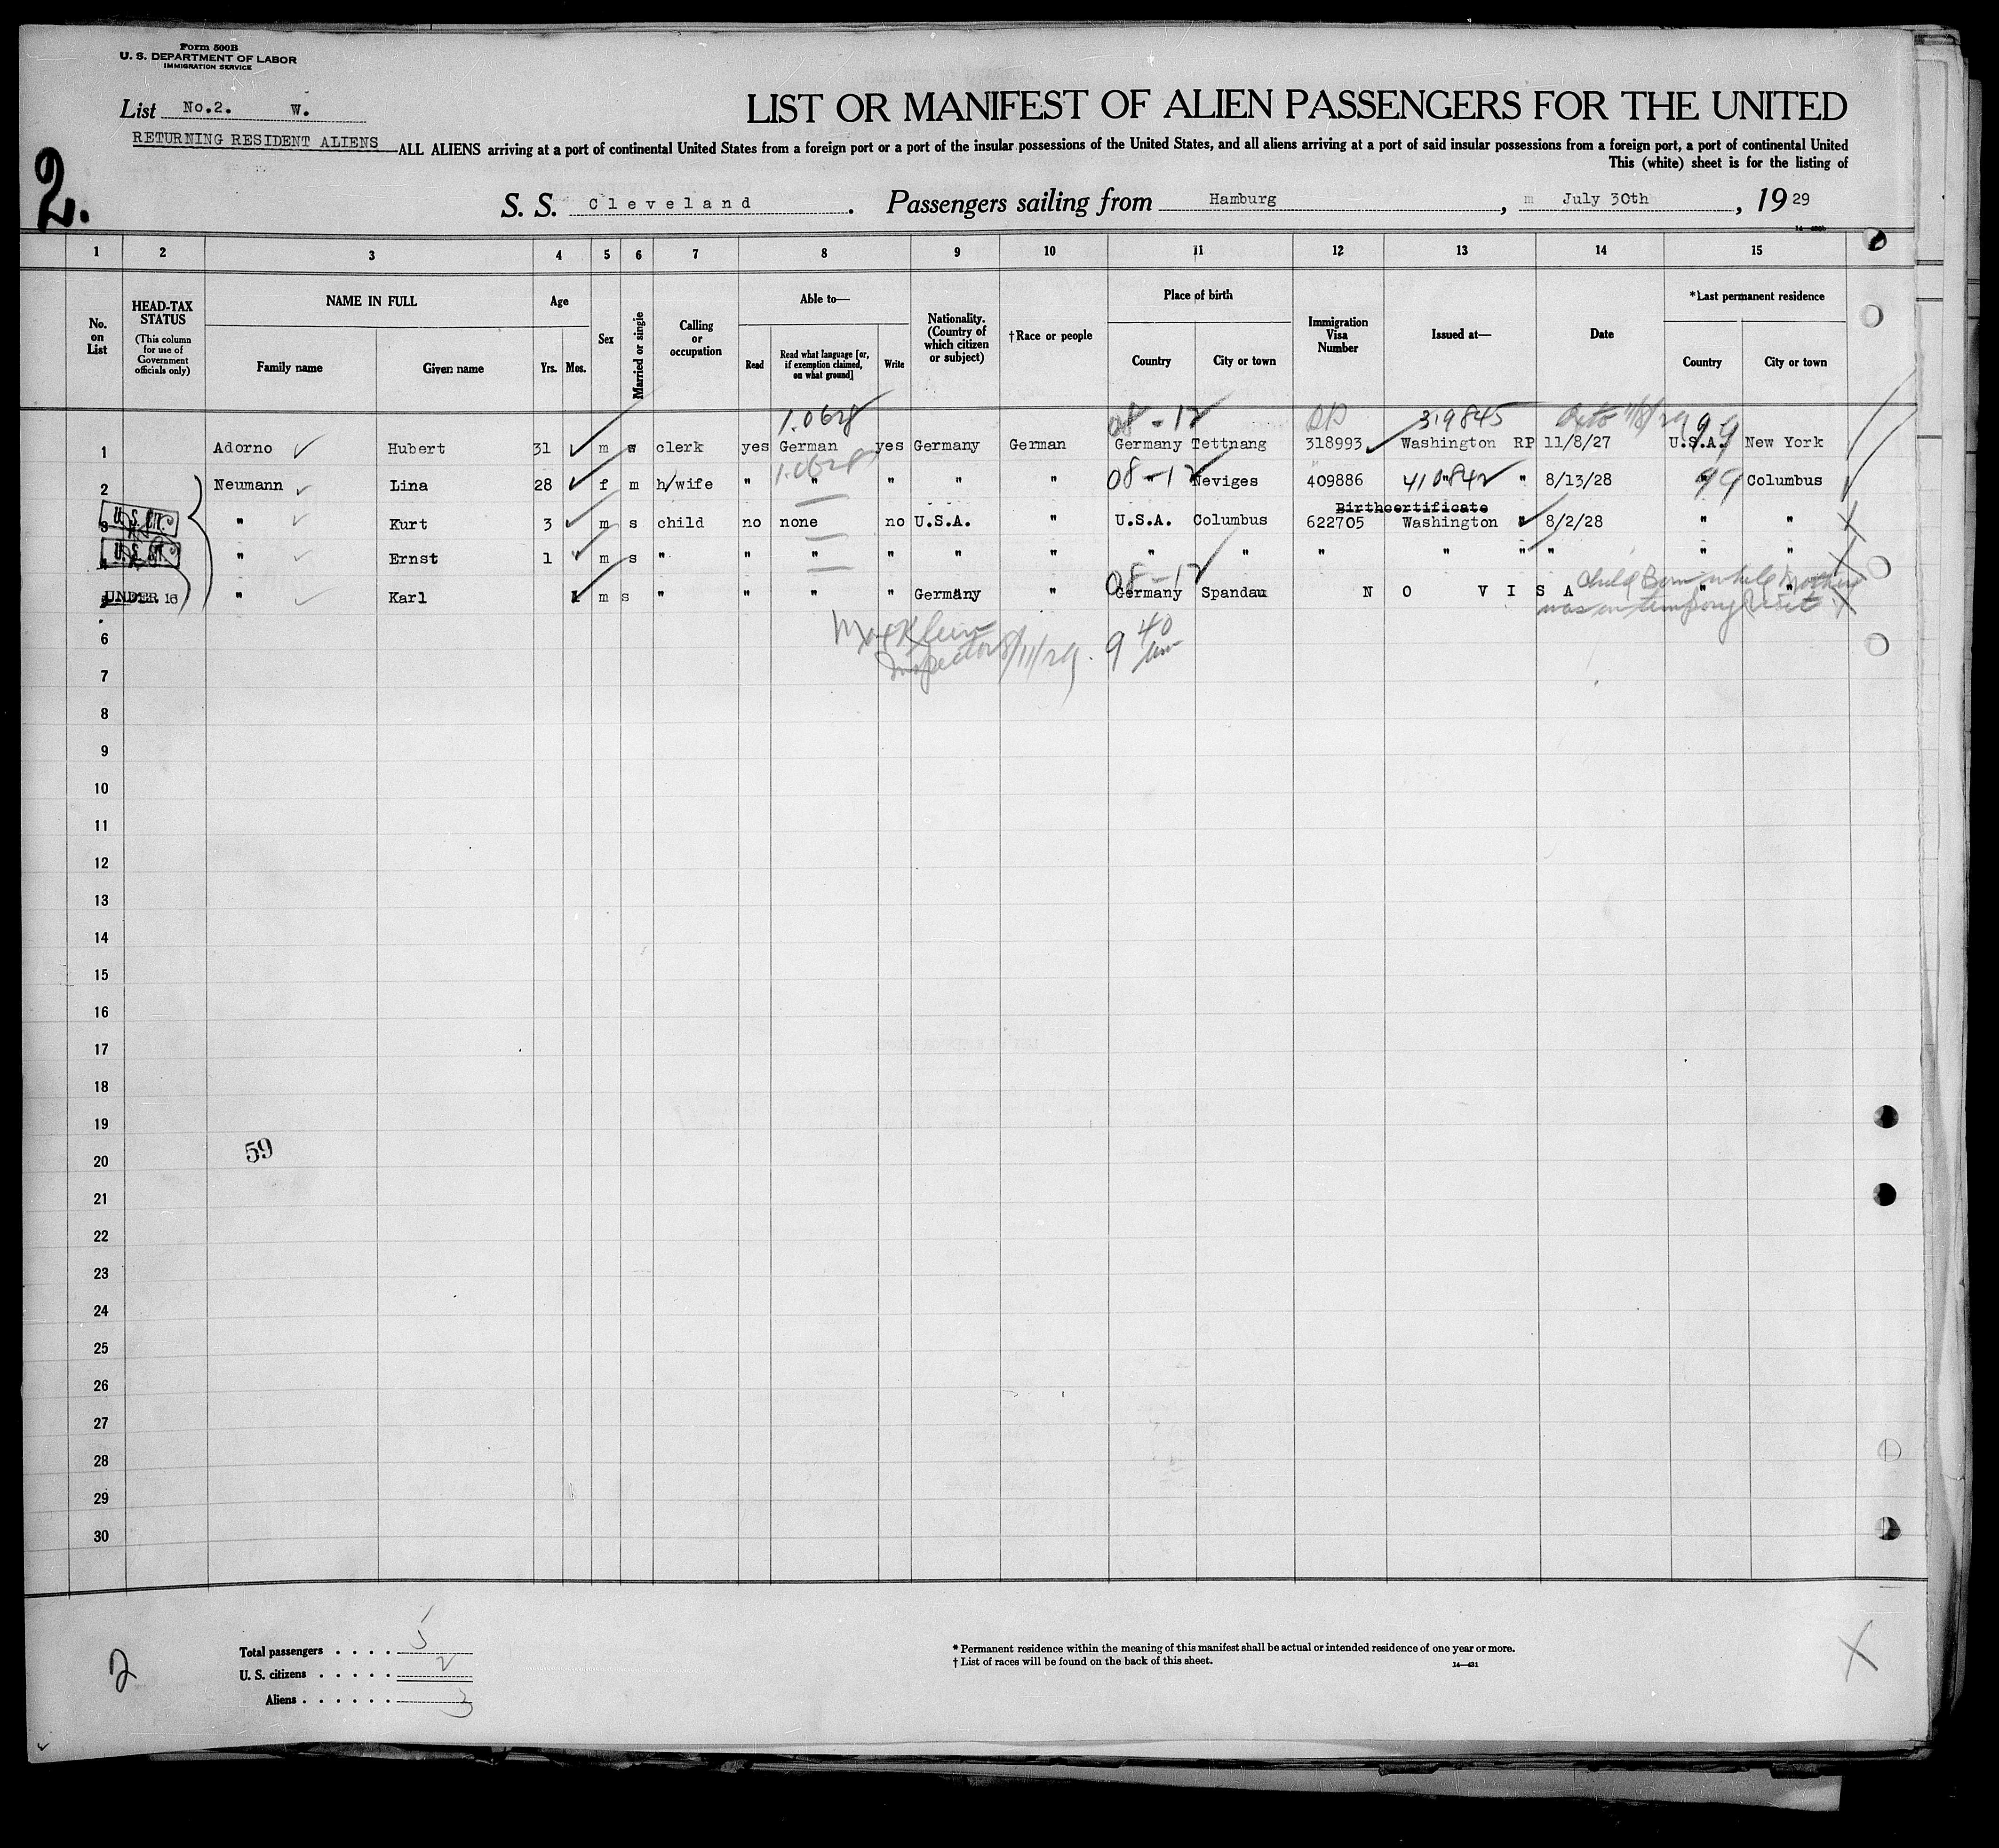 Form 500B
U. S. DEPARTMENT OF LABOR
IMMIGRATION SERVICE
List No.2. W.
LIST OR MANIFEST OF ALIEN PASSENGERS FOR THE UNITED
RETURNING RESIDENT ALIENS
ALL ALIENS arriving at a port of continental United States from a foreign port or a port of the insular possessions of the United States, and all aliens arriving at a port of said insular possessions from a foreign port, a port of continental United
This (white) sheet is for the listing of
2.
S. S. Cleveland. Passengers sailing from Hamburg, July 30th, 1929
1 2 3 4 5 6 7 8 9 10 11 12 13 14 15
No. on List
HEAD-TAX STATUS
(This column for use of Government officials only)
NAME IN FULL
Family name
Given name
Age
Yrs.
Mos.
Sex
Married or single
Calling or occupation
Able to—
Read
Read what language [or, if exemption claimed, on what ground]
Write
Nationality. (Country of which citizen or subject)
†Race or people
Place of birth
Country
City or town
Immigration Visa Number
Issued at—
Date
*Last permanent residence
Country
City or town
1.0628 08-12 319845
1 Adorno Hubert 31 m w clerk yes German yes Germany German Germany Tettnang 318993 Washington RP 11/8/27 U.S.A. 99 New York
1.0628 08-12 410842 99
2 Neumann Lina 28 f m h/wife " " " " " " Neviges 409886 " " 8/13/28 " Columbus
Birthcertificate
3 U. S. CIT. " Kurt 3 m s child no none no U.S.A. " U.S.A. Columbus 622705 Washington " 8/2/28 " "
4 U. S. CIT. " Ernst 1 m s " " " " " " " " " " " " " "
08-12 Child Born while Mother
5 UNDER 16 " Karl 1 m s " " " " Germany " Germany Spandau NO VISA " "
was on temporary Visit
6
Inspector 8/11/29. 9 40
7
8
9
10
11
12
13
14
15
16
17
18
19
59
20
21
22
23
24
25
26
27
28
29
30
2
Total passengers . . . . 5
U. S. citizens . . . . . 2
Aliens . . . . . . 3
* Permanent residence within the meaning of this manifest shall be actual or intended residence of one year or more.
† List of races will be found on the back of this sheet.
14—431
X